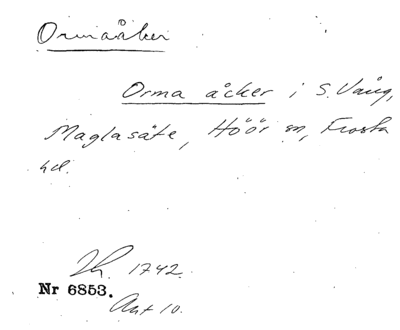 Ormaåker
Orma åcker i S. Vång,
Maglasäte, Höör sn, Frosta
hd.
Lh. 1742.
Nr 6853.
Akt 10.